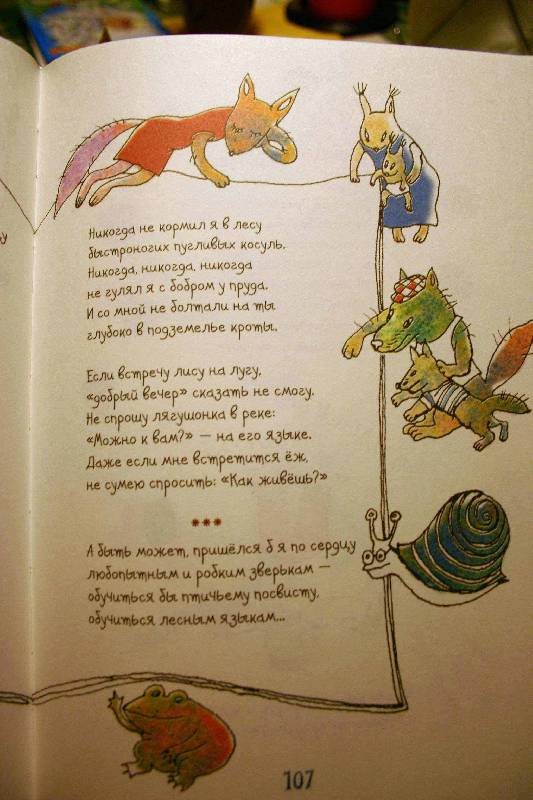 Никогда не кормил я в лесу
быстроногих пугливых косуль.
Никогда, никогда, никогда
не гулял я с бобром у пруда.
И со мной не болтали на ты
глубоко в подземелье кроты.
Если встречу лису на лугу,
«добрый вечер» сказать не смогу.
Не спрошу лягушонка в реке:
«Можно к вам?» — на его языке.
Даже если мне встретится ёж,
не сумею спросить: «Как живёшь?»
***
А быть может, пришёлся б я по сердцу
любопытным и робким зверькам —
обучиться бы птичьему посвисту,
обучиться лесным языкам...
107